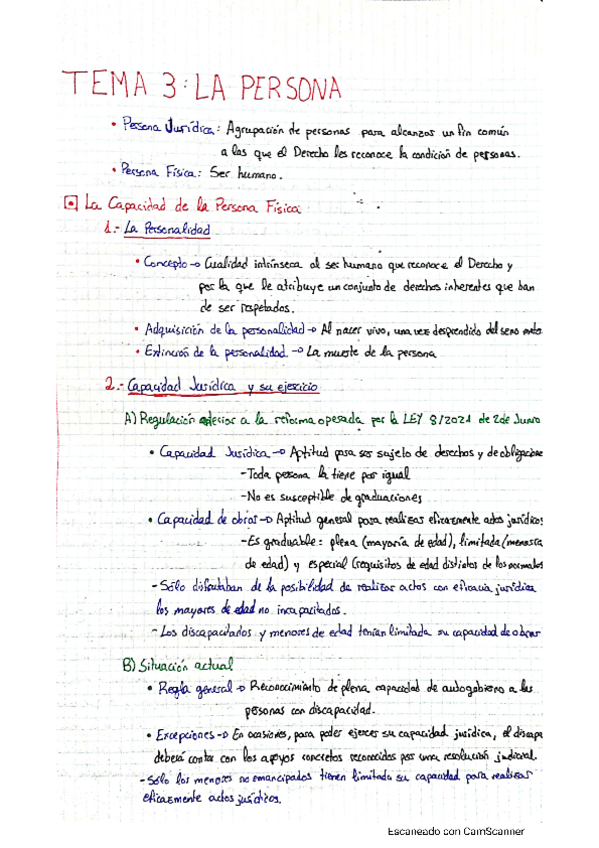 TEMA 3: LA PERSONA
• Persona Jurídica: Agrupación de personas para alcanzar un fin común
a las que el Derecho les reconoce la condición de personas.
• Persona Física: Ser humano.
La Capacidad de la Persona Física
1.- La Personalidad
• Concepto → Cualidad intrínseca al ser humano que reconoce el Derecho y
por la que le atribuye un conjunto de derechos inherentes que han
de ser respetados.
• Adquisición de la personalidad → Al nacer vivo, una vez desprendido del seno
• Extinción de la personalidad → La muerte de la persona
2.- Capacidad Jurídica y su ejercicio
A) Regulación anterior a la reforma operada por la LEY 8/2021 de 2 de Junio
• Capacidad Jurídica → Aptitud para ser sujeto de derechos y de
- Toda persona la tiene por igual
- No es susceptible de graduaciones
• Capacidad de obrar → Aptitud general para realizar eficazmente actos jurídicos
- Es graduable: plena (mayoría de edad), limitada (menoría
de edad) y especial (requisitos de edad distintos de los normales
- Sólo disfrutaban de la posibilidad de realizar actos con eficacia jurídica
los mayores de edad no incapacitados.
- Los discapacitados y menores de edad tenían limitada su capacidad de obrar
B) Situación actual
• Regla general → Reconocimiento de plena capacidad de autogobierno a las
personas con discapacidad.
• Excepciones → En ocasiones, para poder ejercer su capacidad jurídica, el discapa
deberá contar con los apoyos concretos reconocidos por una resolución judicial.
- Sólo los menores no emancipados tienen limitada su capacidad para realizar
eficazmente actos jurídicos.
Escaneado con CamScanner